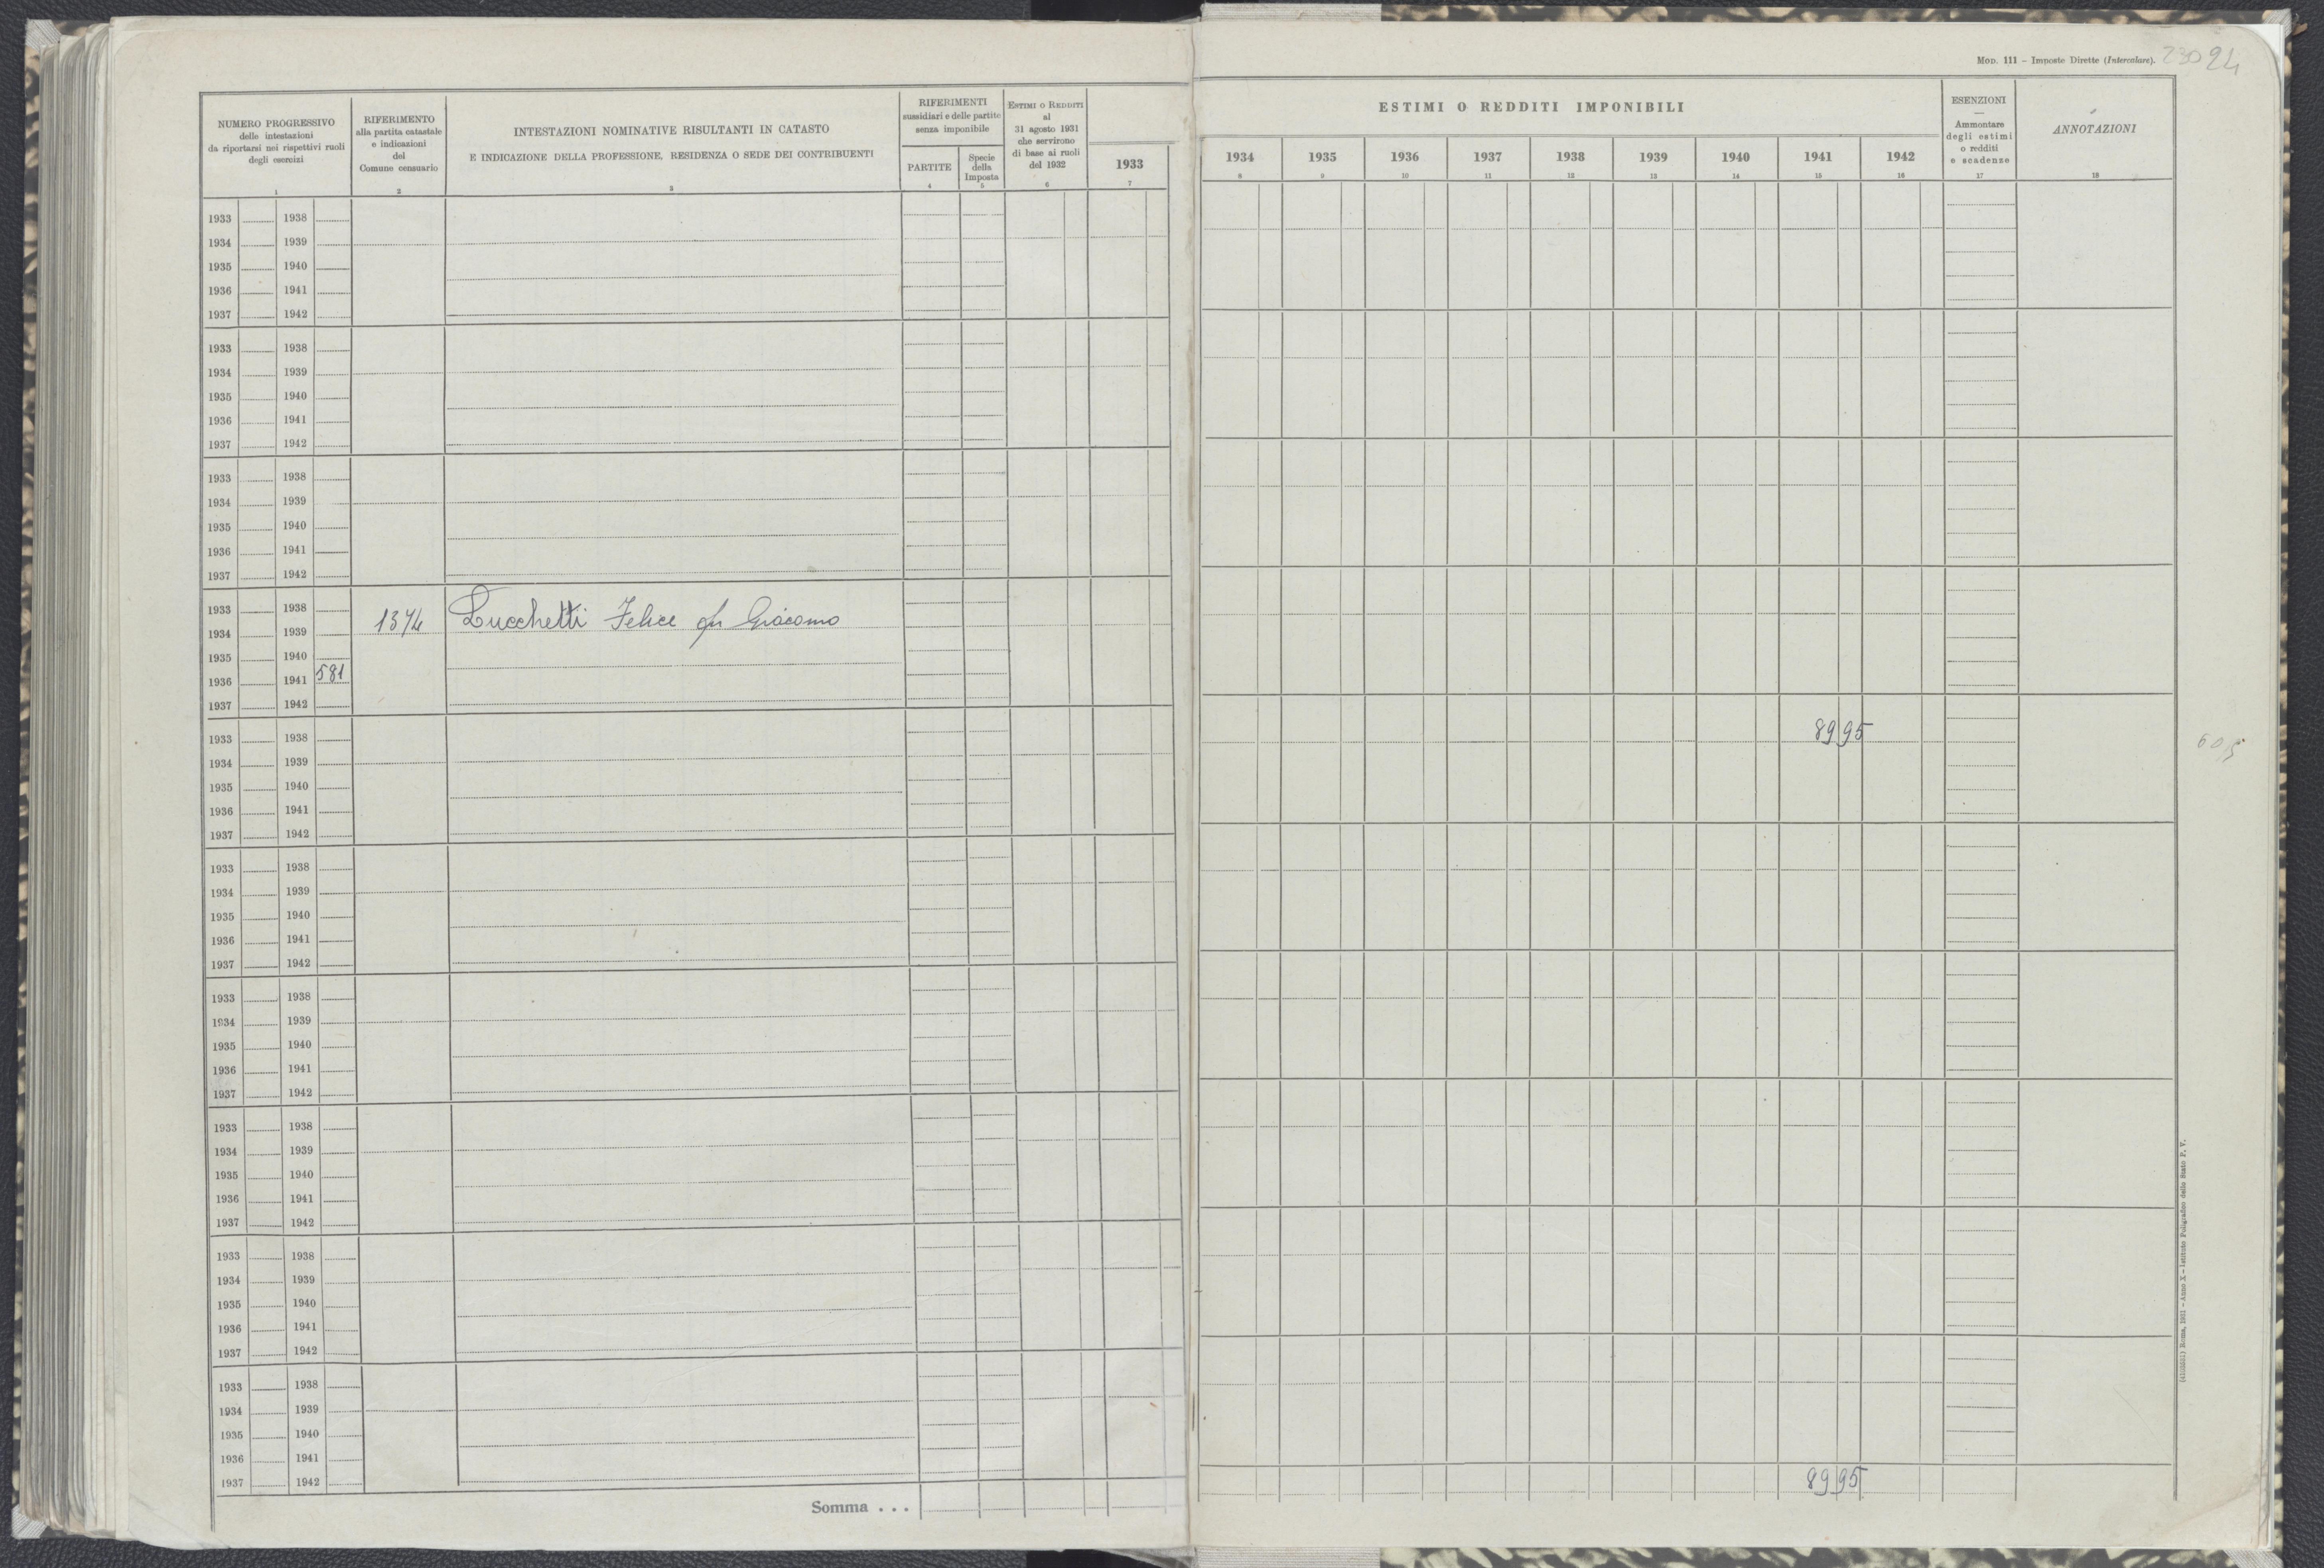 MOD. 111 – Imposte Dirette (Intercalare).
24
NUMERO PROGRESSIVO
delle intestazioni
da riportarsi nei rispettivi ruoli
degli esercizi
1
RIFERIMENTO
alla partita catastale
e indicazioni
del
Comune censuario
2
INTESTAZIONI NOMINATIVE RISULTANTI IN CATASTO
E INDICAZIONE DELLA PROFESSIONE, RESIDENZA O SEDE DEI CONTRIBUENTI
3
RIFERIMENTI
sussidiari e delle partite
senza imponibile
PARTITE
4
Specie
della
Imposta
5
ESTIMI O REDDITI
al
31 agosto 1931
che servirono
di base ai ruoli
del 1932
6
1933
7
ESTIMI O REDDITI IMPONIBILI
1934 1935 1936 1937 1938 1939 1940 1941 1942
8 9 10 11 12 13 14 15 16
ESENZIONI
—
Ammontare
degli estimi
o redditi
e scadenze
17
ANNOTAZIONI
18
1933 1938
1934 1939
1935 1940
1936 1941
1937 1942
1933 1938
1934 1939
1935 1940
1936 1941
1937 1942
1933 1938
1934 1939
1935 1940
1936 1941
1937 1942
1933 1938
1934 1939 1374 Lucchetti Felice fu Giacomo
1935 1940
1936 1941 581
1937 1942
1933 1938 89 95
1934 1939
1935 1940
1936 1941
1937 1942
1933 1938
1934 1939
1935 1940
1936 1941
1937 1942
1933 1938
1934 1939
1935 1940
1936 1941
1937 1942
1933 1938
1934 1939
1935 1940
1936 1941
1937 1942
1933 1938
1934 1939
1935 1940
1936 1941
1937 1942
1933 1938
1934 1939
1935 1940
1936 1941
1937 1942
Somma . . . 89 95
Roma, 1931 – Anno X – Istituto Poligrafico dello Stato P. V.